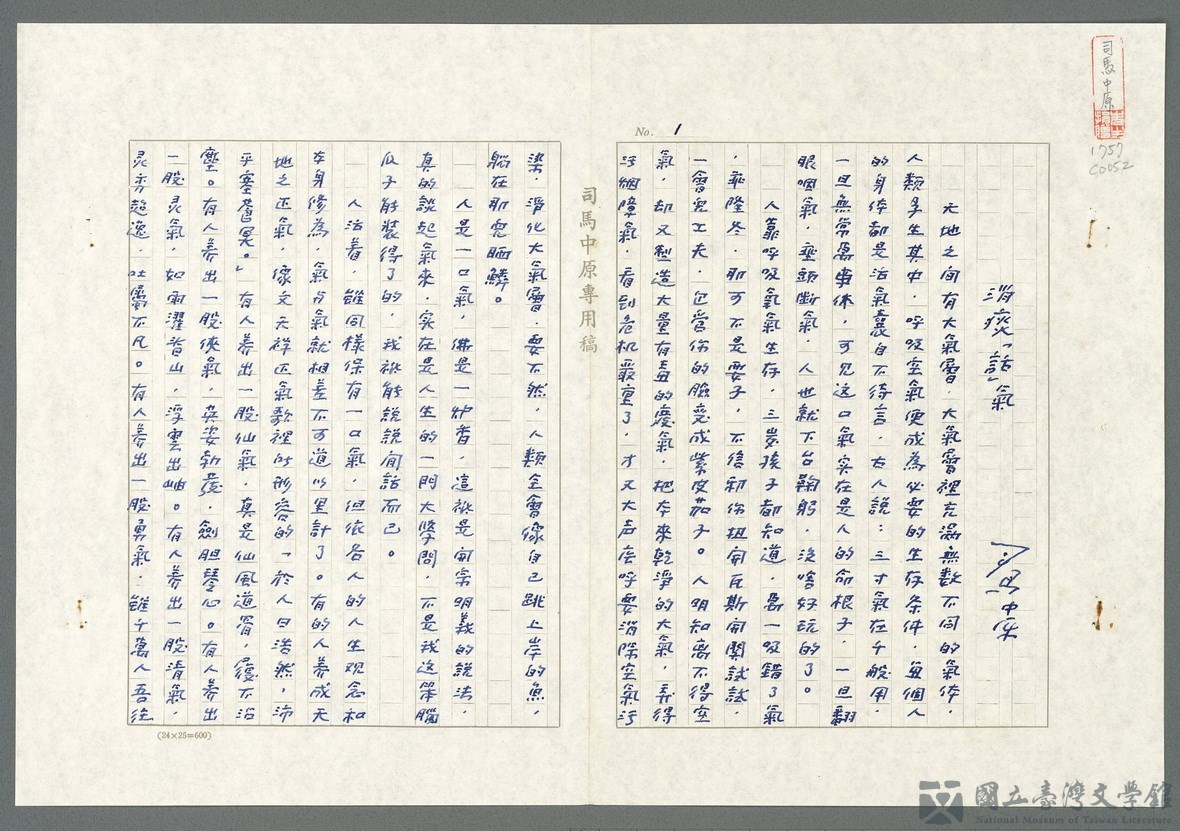 司馬中原
1757
C0052
No. 1
消痰「話」氣
司馬中原
天地之間有大氣層,大氣層裡充滿無數不同的氣体,
人類孕生其中,呼吸空氣便成為必要的生存条件,每個人
的身体都是活氣囊自不待言,古人說:三寸氣在千般用,
一旦無常萬事休,可見這口氣实在是人的命根子,一旦翻
眼嚥氣,垂頭斷氣,人也就下台鞠躬,沒啥好玩的了。
人靠呼吸氣氣生存,三歲孩子都知道,萬一吸錯了氣
,乖隆冬,那可不是耍子,不信和你扭開瓦斯開關試試,
一會兒工夫,包管你的臉变成紫皮茄子。人明知离不得空
氣,却又製造大量有毒的廢氣,把本來乾淨的大氣,弄得
汙烟障氣,看到危机嚴重了,才又大声疾呼要消除空氣汙
司馬中原專用稿
染,淨化大氣層,要不然,人類全會像自己跳上岸的魚,
躺在那兒晒鱗。
人是一口氣,佛是一炉香,這祇是開宗明義的說法,
真的談起氣來,实在是人生的一門大學問,不是我這笨腦
瓜子能裝得了的,我祇能說說閒話而已。
人活着,雖同樣保有一口氣,但依各人的人生观念和
本身修為,氣与氣就相差不可道以里計了。有的人養成天
地之正氣,像文天祥正氣歌裡所形容的「於人曰浩然,沛
乎塞蒼冥。」有人養出一股仙氣,真是仙風道骨,履不沾
塵。有人養出一股俠氣,英姿勃發,劍胆琴心。有人養出
一股灵氣,如雨濯眉山,浮雲出岫。有人養出一股清氣,
灵秀超逸,吐屬不凡。有人養出一股勇氣,雖千萬人吾往
(24×25=600)
國立臺灣文學館
National Museum of Taiwan Literature